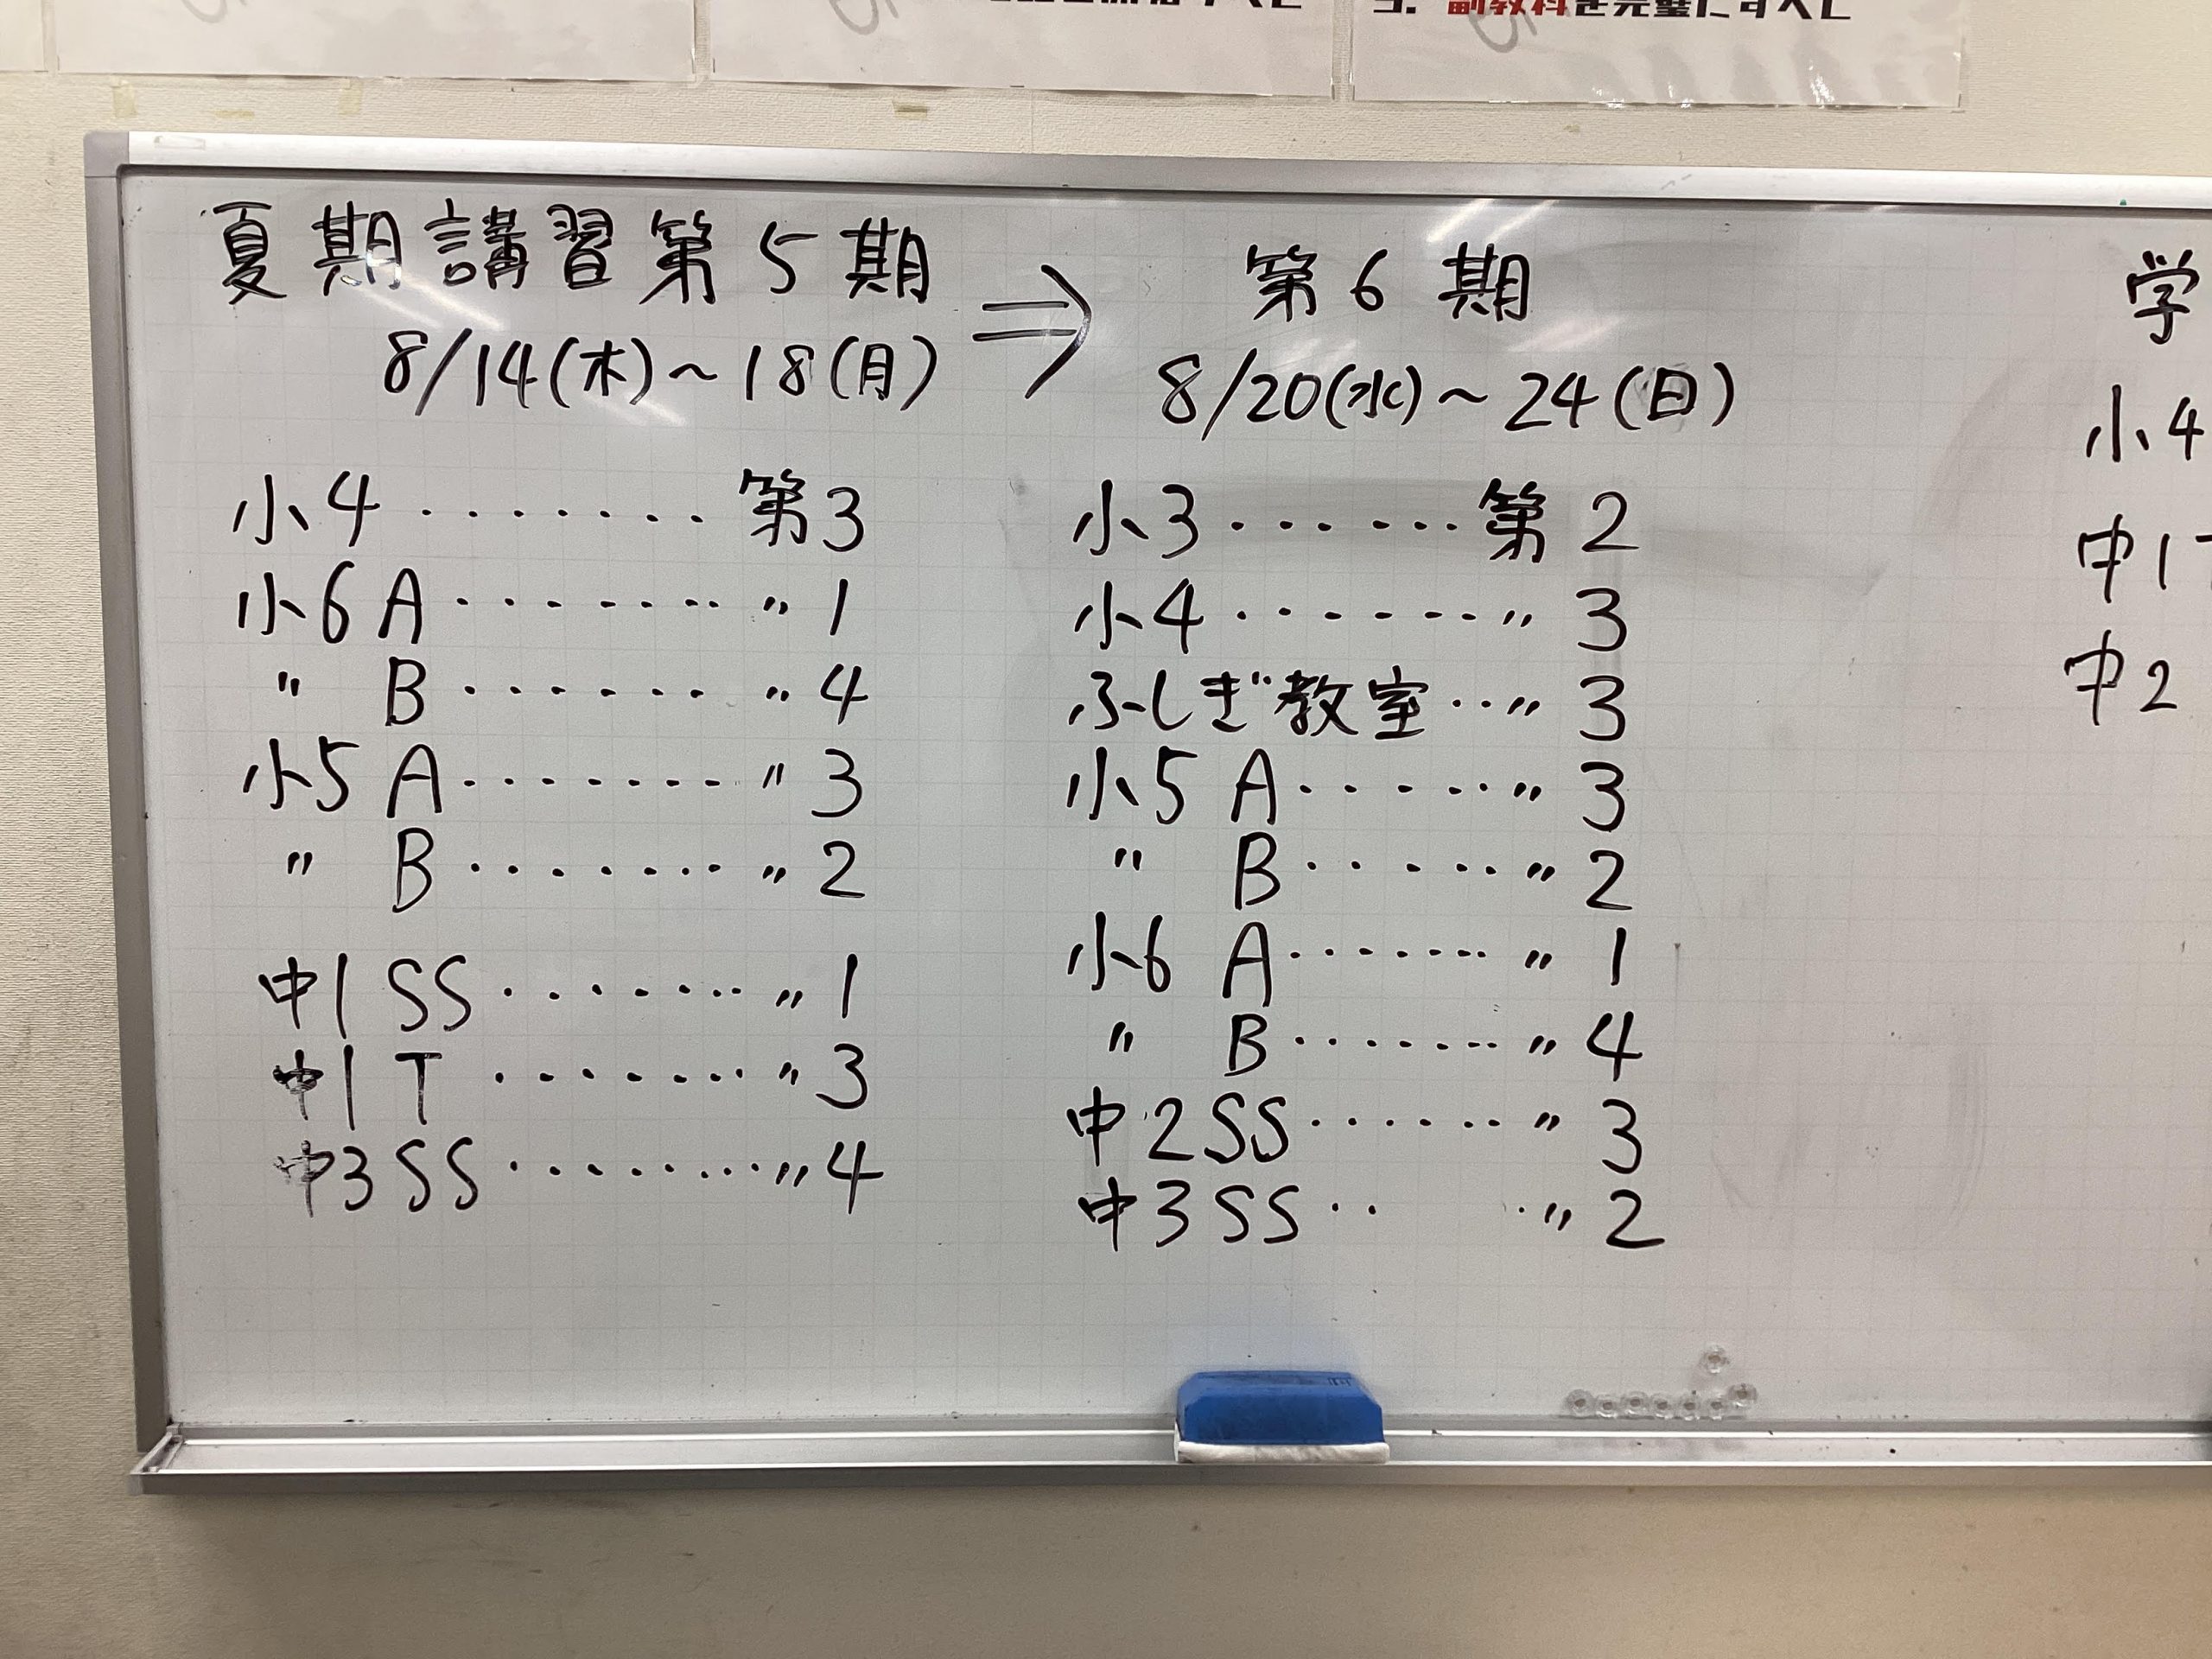 副教科を完璧にすべし
夏期講習第5期
8/14(木)~18(月)
小4・・・・・・・第3
小6 A・・・・・・・・〃1
〃 B・・・・・・・〃4
小5 A・・・・・・・〃3
〃 B・・・・・・・〃2
中1 SS・・・・・・・〃1
中1 T・・・・・・・〃3
中3 SS・・・・・・・・〃4
⇒
第6期
8/20(水)~24(日)
小3・・・・・・第2
小4・・・・・・・〃3
ふしぎ教室・・〃3
小5 A・・・・・〃3
〃 B・・・・・〃2
小6 A・・・・・・・〃1
〃 B・・・・・・・〃4
中2SS・・・・・・〃3
中3SS・・ ・〃2
学
小4
中1
中2